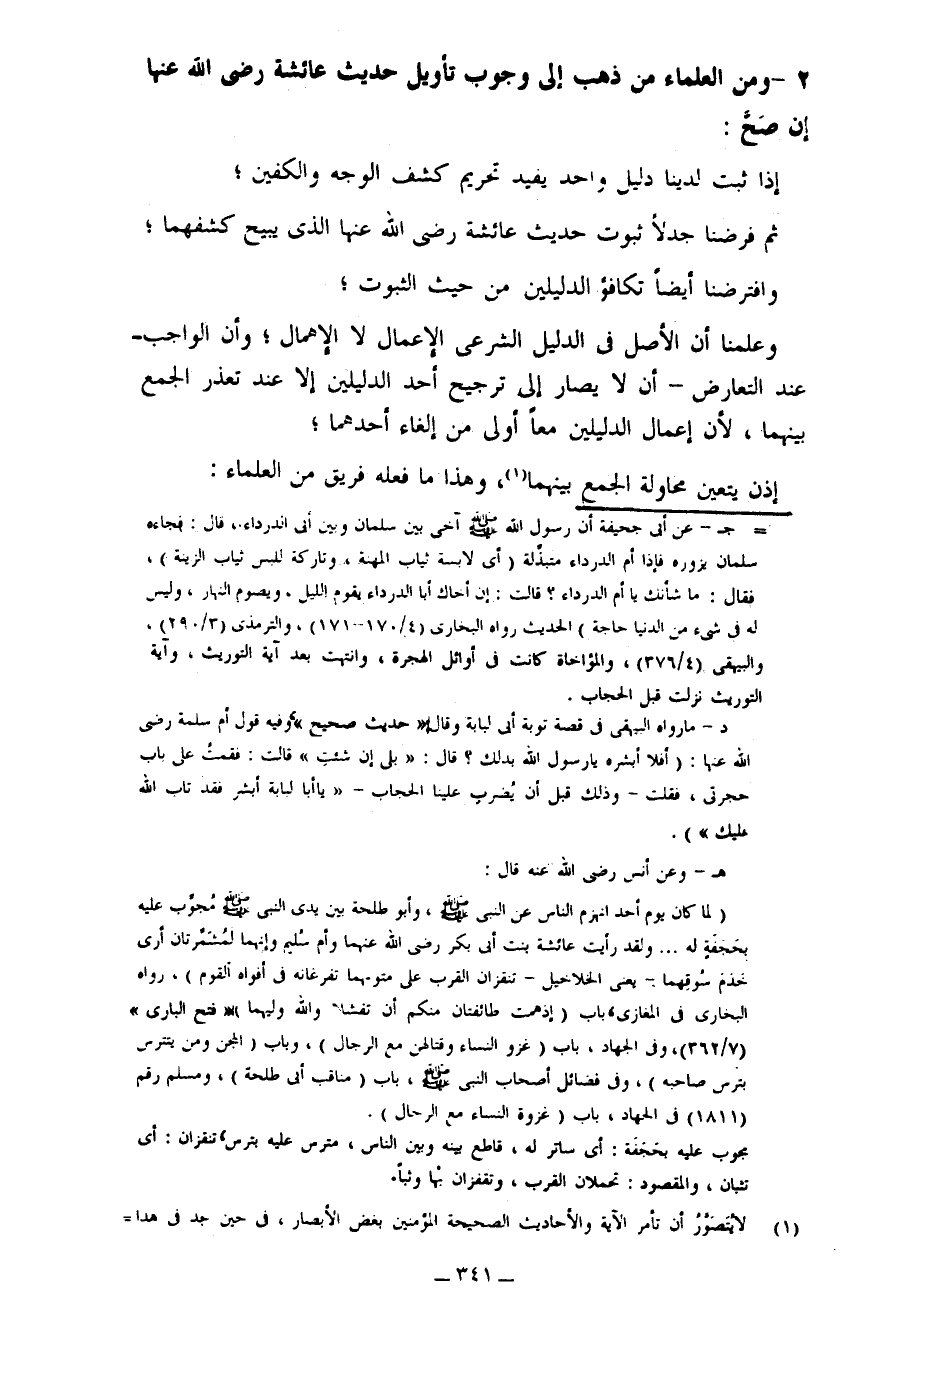 ٢ - ومن العلماء من ذهب إلى وجوب تأويل حديث عائشة رضى الله عنها
إن صَحَّ :
إذا ثبت لدينا دليل واحد يفيد تحريم كشف الوجه والكفين ؛
ثم فرضنا جدلاً ثبوت حديث عائشة رضى الله عنها الذى يبيح كشفهما ؛
وافترضنا أيضاً تكافؤ الدليلين من حيث الثبوت ؛
وعلمنا أن الأصل فى الدليل الشرعى الإعمال لا الإهمال ؛ وأن الواجب-
عند التعارض - أن لا يصار إلى ترجيح أحد الدليلين إلا عند تعذر الجمع
بينهما ، لأن إعمال الدليلين معاً أولى من إلغاء أحدهما ؛
إذن يتعين محاولة الجمع بينهما(١)، وهذا ما فعله فريق من العلماء :
= جـ - عن أبى جحيفة أن رسول الله ﷺ آخى بين سلمان وبين أبى الدرداء، قال : فجاءه
سلمان يزوره فإذا أم الدرداء متبذِّلة ( أى لابسة ثياب المهنة ، وتاركة للبس ثياب الزينة ) ،
فقال : ما شأنك يا أم الدرداء ؟ قالت : إن أخاك أبا الدرداء يقوم الليل ، ويصوم النهار ، وليس
له فى شىء من الدنيا حاجة ) الحديث رواه البخارى (٤/١٧٠--١٧١) ، والترمذى (٣/٢٩٠) ،
والبيهقى (٤/٣٧٦) ، والمؤاخاة كانت فى أوائل الهجرة ، وانتهت بعد آية التوريث ، وآية
التوريث نزلت قبل الحجاب .
د - مارواه البيهقى فى قصة توبة أبى لبابة وقال: « حديث صحيح » وفيه قول أم سلمة رضى
الله عنها : ( أفلا أبشره يارسول الله بذلك ؟ قال : « بلى إن شئتِ » قالت : فقمتُ على باب
حجرتى ، فقلت - وذلك قبل أن يُضرب علينا الحجاب - « ياأبا لبابة أبشر فقد تاب الله
عليك » ) .
هـ - وعن أنس رضى الله عنه قال :
( لما كان يوم أحد انهزم الناس عن النبى ﷺ ، وأبو طلحة بين يدى النبى ﷺ مُجوَّب عليه
بحَجَفَةٍ له ... ولقد رأيت عائشة بنت أبى بكر رضى الله عنهما وأم سُليم وإنهما لمُشَمِّرتان أرى
خَدَمَ سُوقِهما - يعنى الخلاخيل - تنقزان القرب على متونهما تفرغانه فى أفواه القوم ) ، رواه
البخارى فى المغازى، باب ( إذهمت طائفتان منكم أن تفشلا والله وليهما ) « فتح البارى »
(٧/٣٦٢)، وفى الجهاد ، باب ( غزو النساء وقتالهن مع الرجال ) ، وباب ( المجن ومن يتترس
بترس صاحبه ) ، وفى فضائل أصحاب النبى ﷺ ، باب ( مناقب أبى طلحة ) ، ومسلم رقم
(١٨١١) فى الجهاد ، باب ( غزوة النساء مع الرجال ) .
مجوب عليه بحَجَفَة : أى ساتر له ، قاطع بينه وبين الناس ، مترس عليه بترس، تنقزان : أى
تثبان ، والمقصود : تحملان القرب ، وتقفزان بها وثباً.
(١) لايُتَصَوَّرُ أن تأمر الآية والأحاديث الصحيحة المؤمنين بغض الأبصار ، فى حين جد فى هذا=
— ٣٤١ —